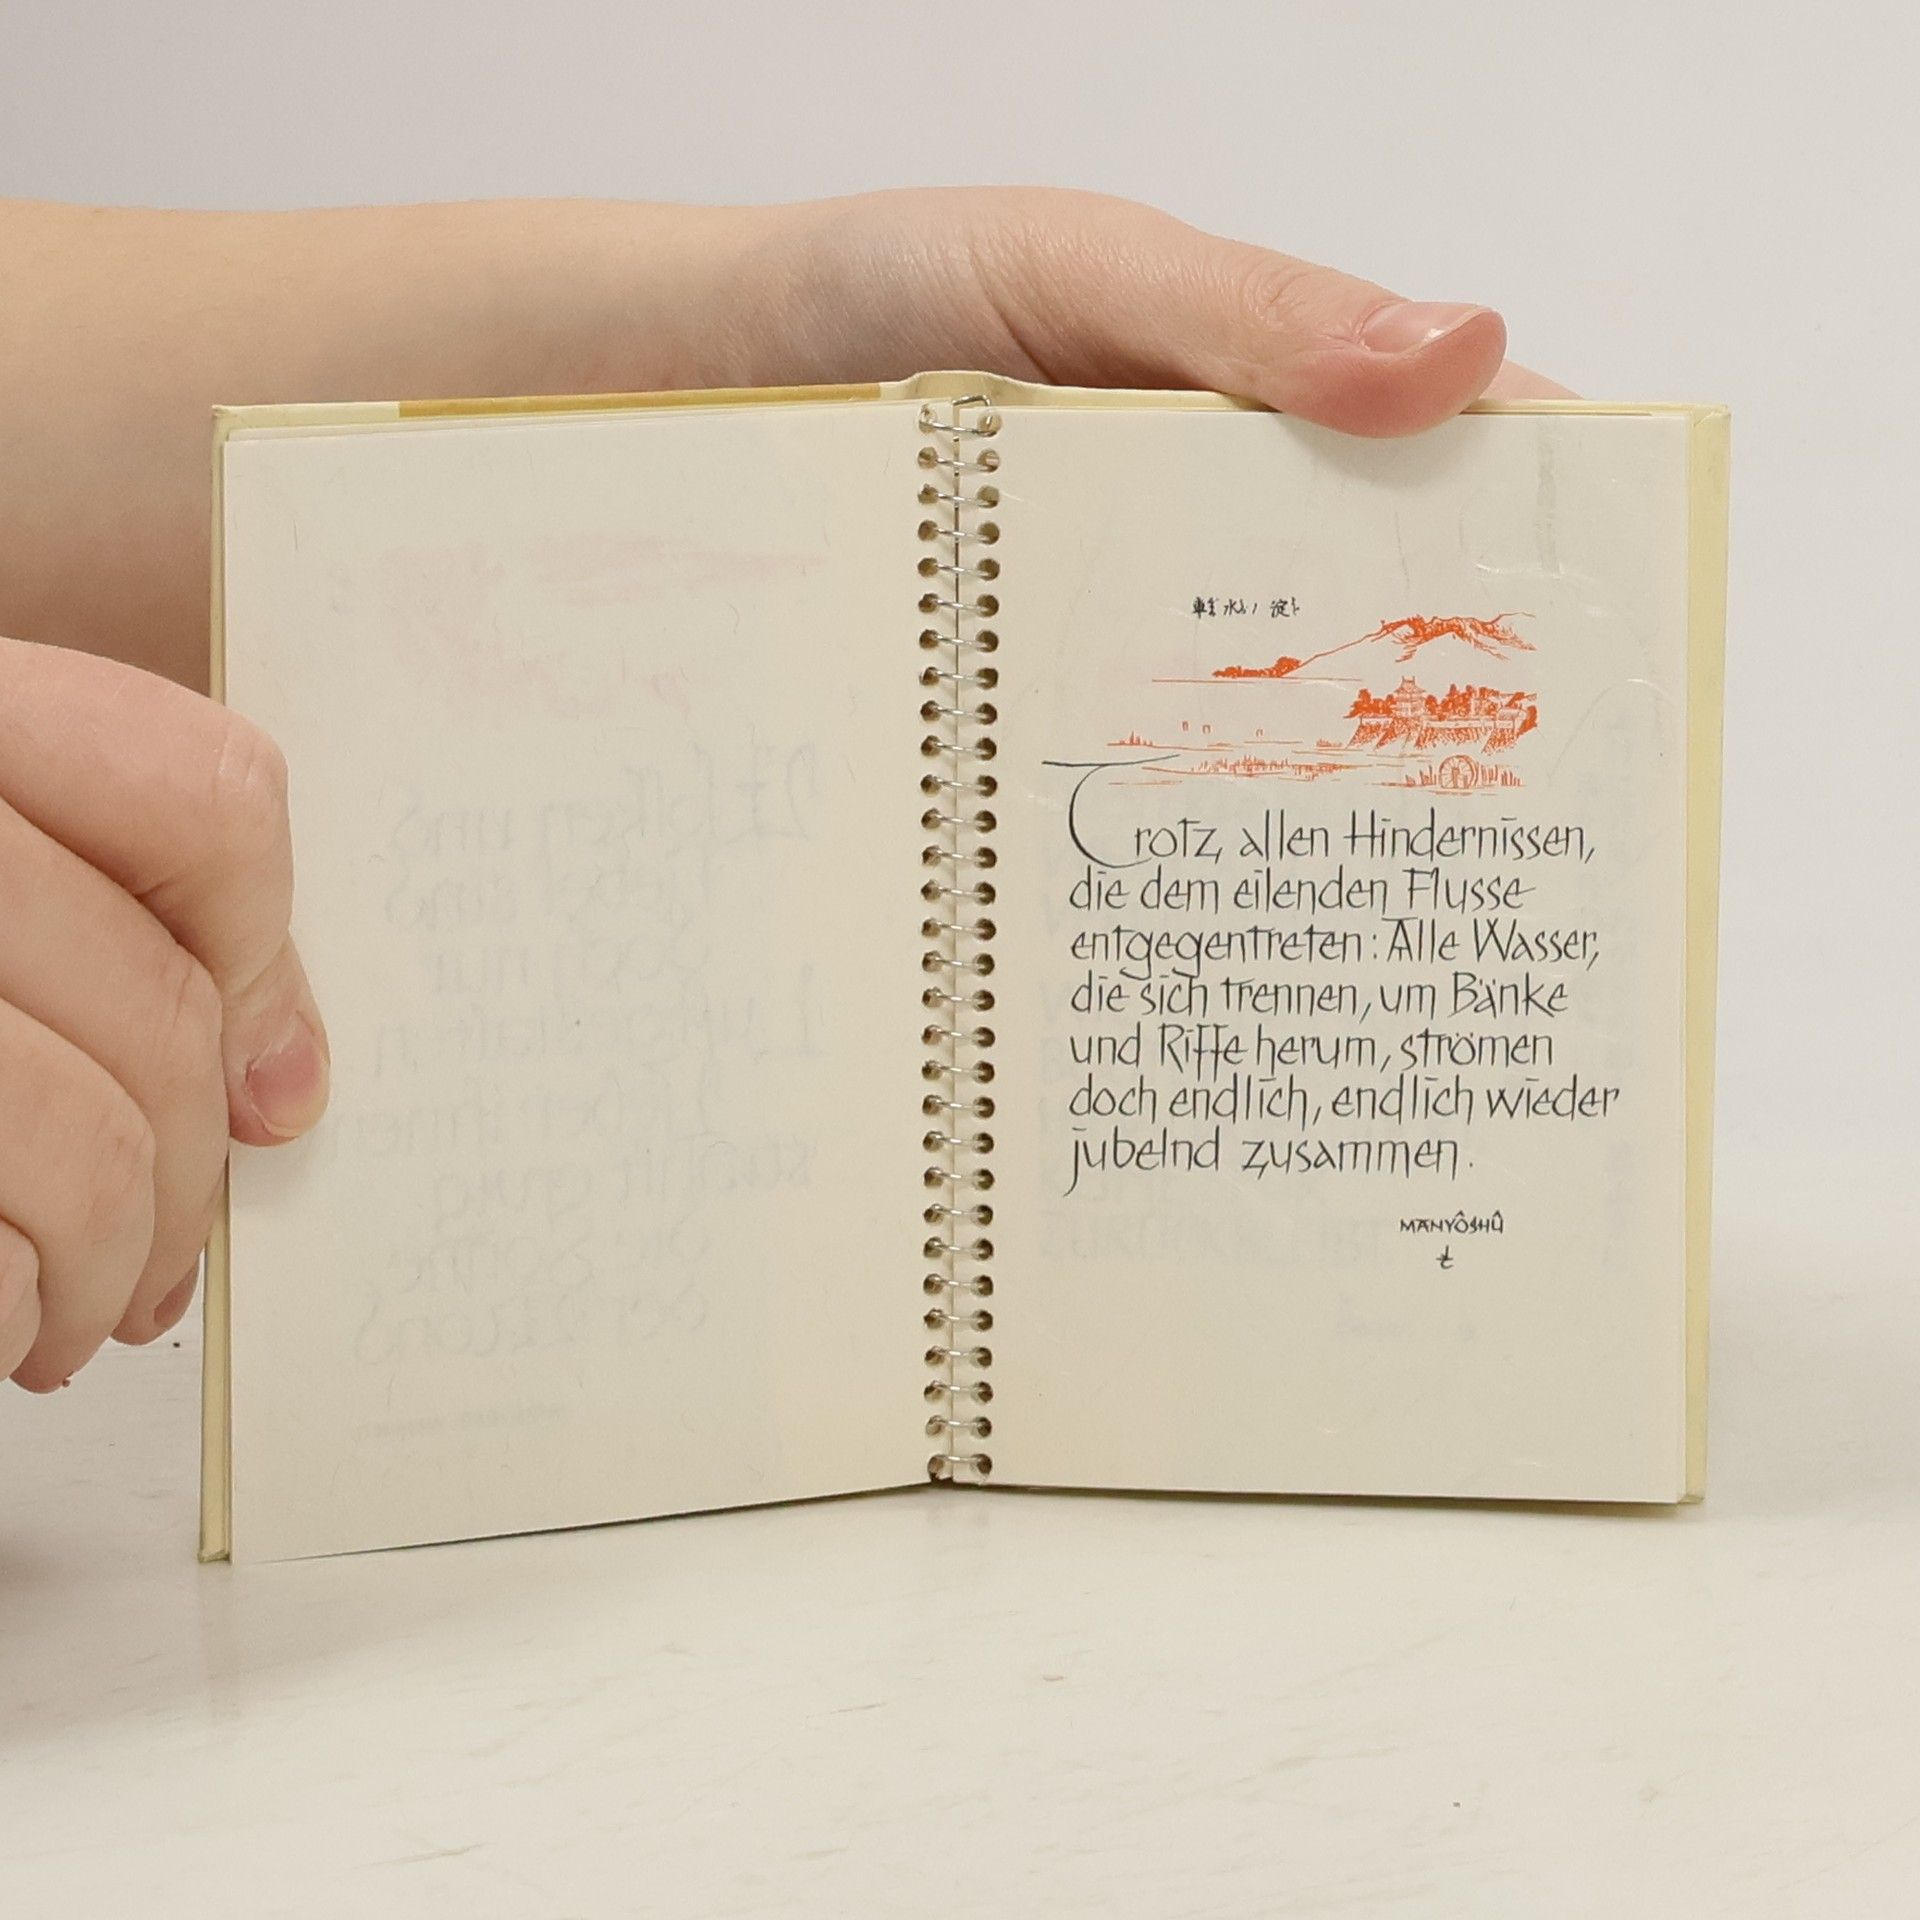 Trotz allen Hindernissen,
die dem eilenden Flusse
entgegentreten: Alle Wasser,
die sich trennen, um Bänke
und Riffe herum, strömen
doch endlich, endlich wieder
jubelnd zusammen.
MANYÔSHÛ